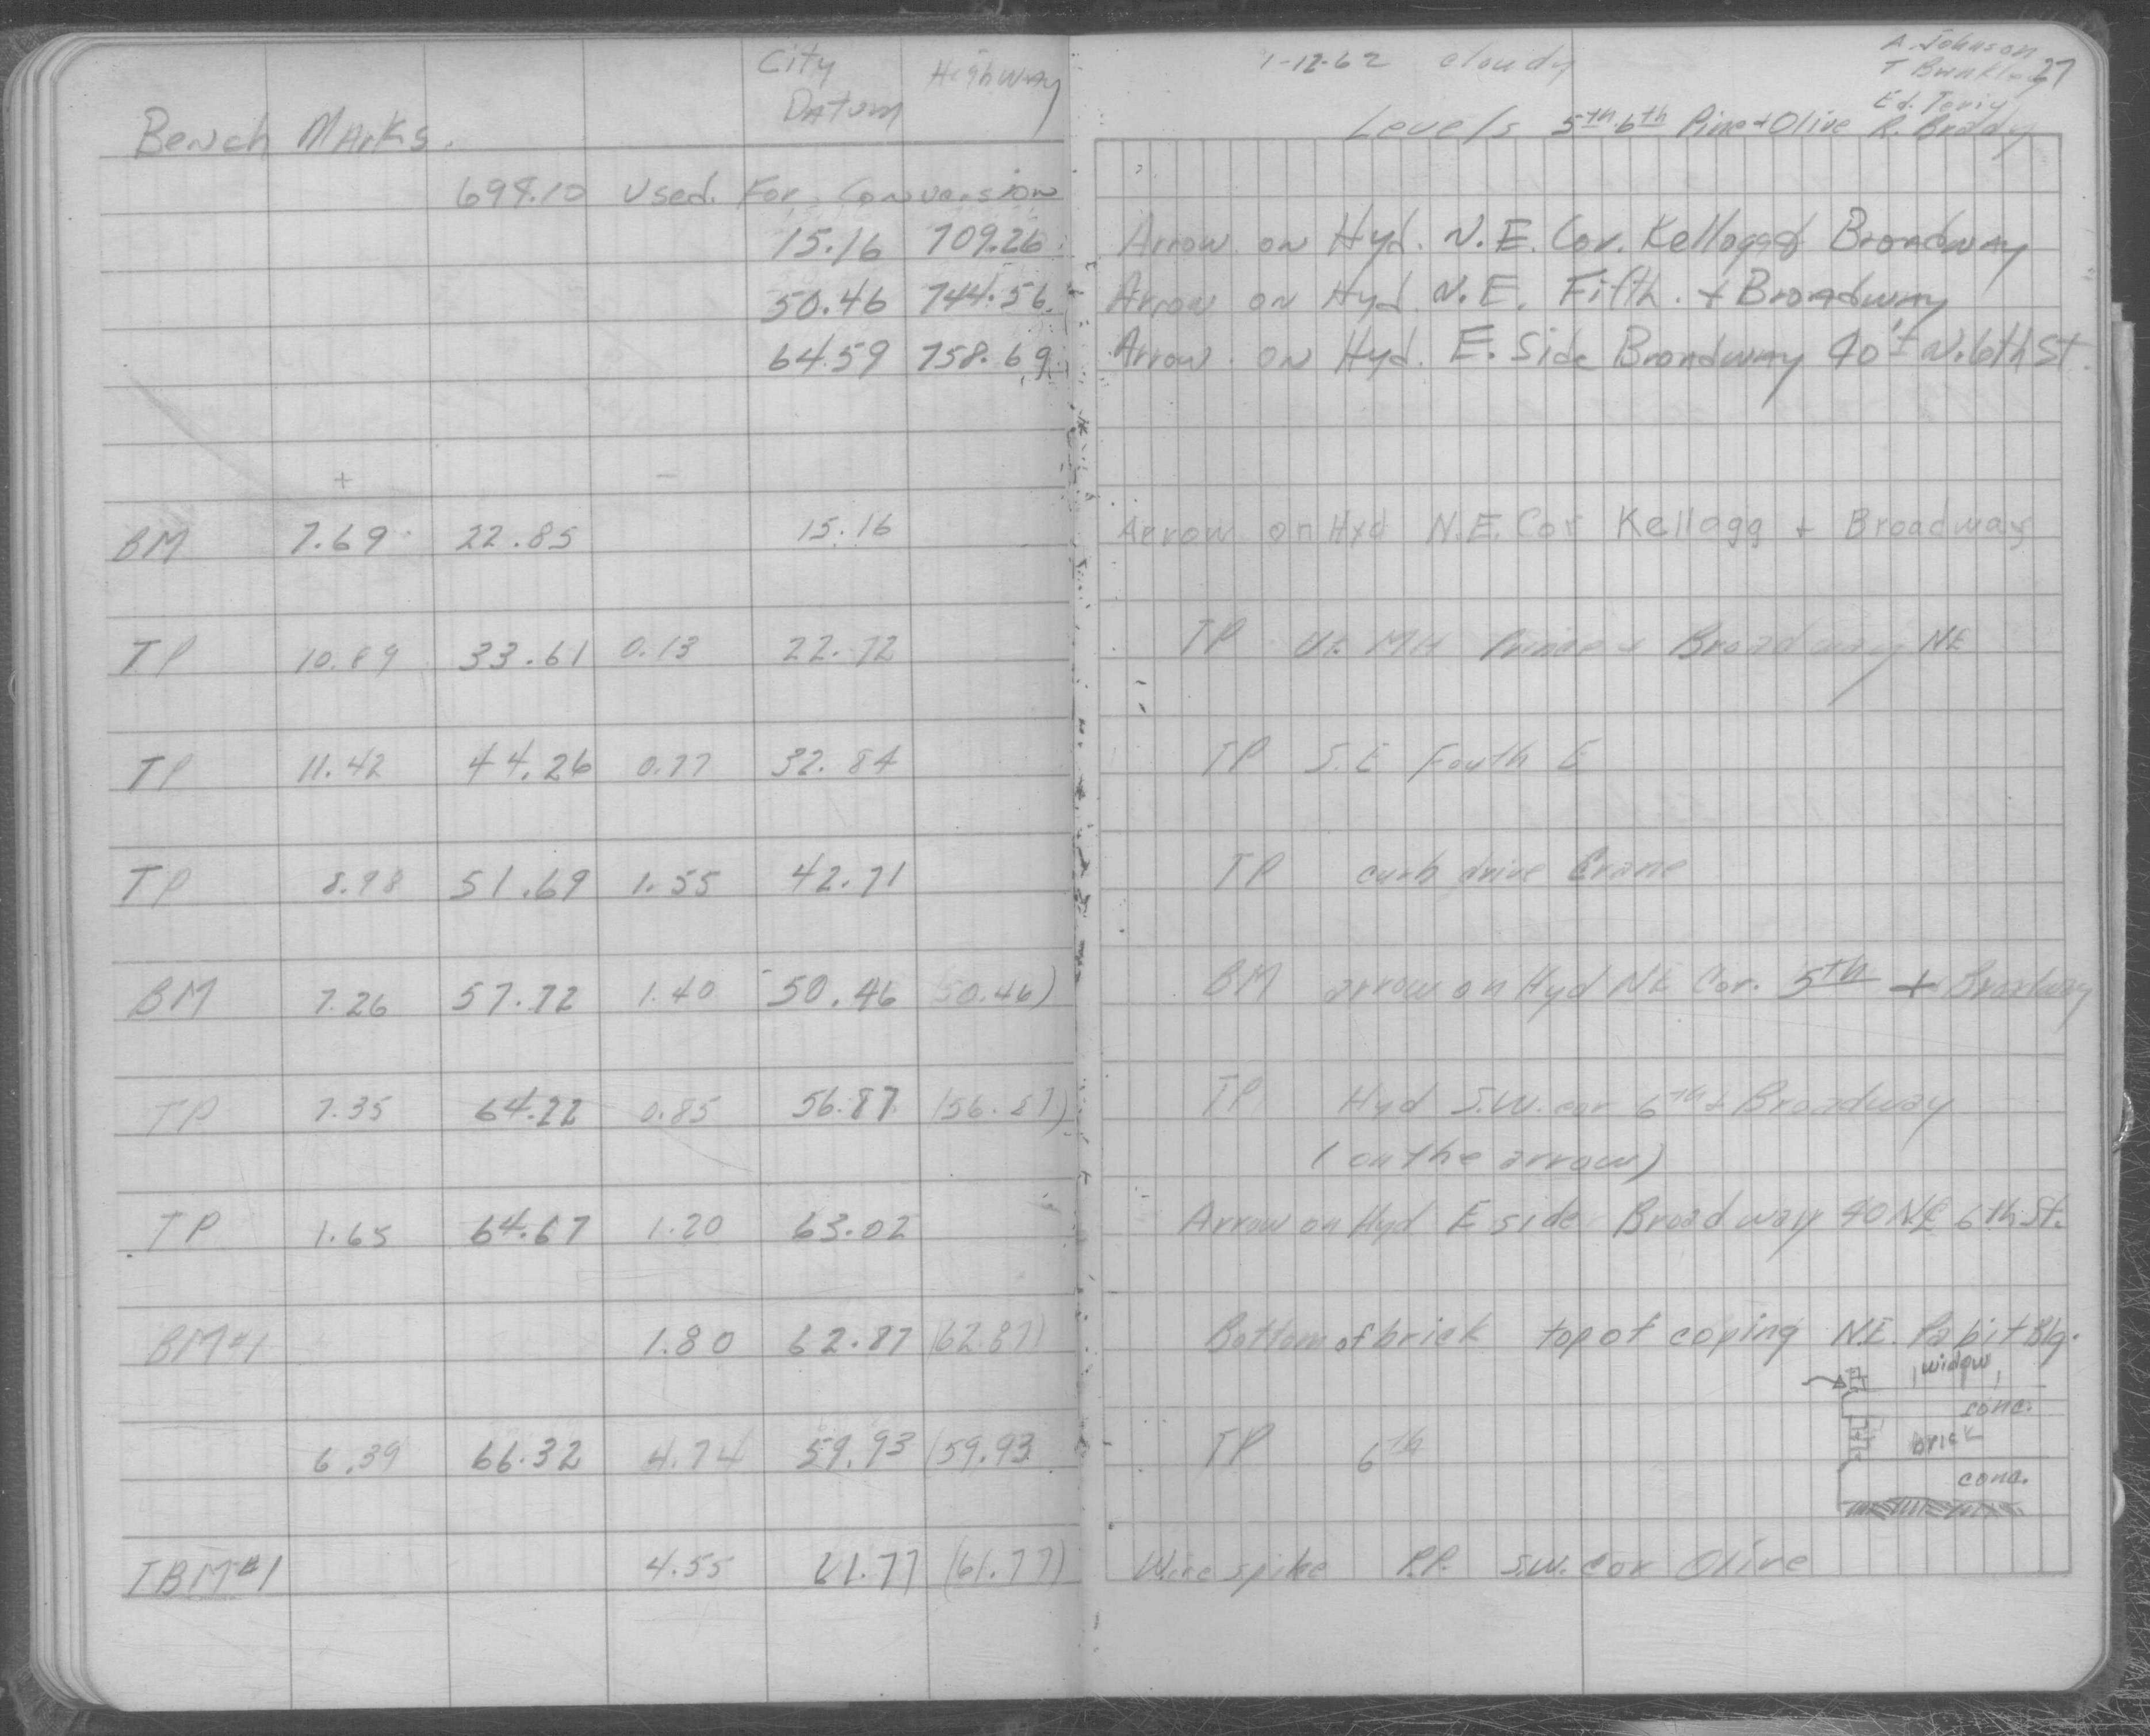 City Highway
Datum
Bench Marks.
694.10 Used For Conversion
15.16 709.26
50.46 744.56
64.59 758.69
+ -
BM 7.69 22.85 15.16
TP 10.89 33.61 0.13 22.72
TP 11.42 44.26 0.77 32.84
TP 8.98 51.69 1.55 42.71
BM 7.26 57.72 1.40 50.46 (50.46)
TP 7.35 64.22 0.85 56.87 (56.87)
TP 1.65 64.67 1.20 63.02
BM#1 1.80 62.87 (62.87)
6.39 66.32 4.74 59.93 (59.93
TBM#1 4.55 61.77 (61.77)
1-12-62 cloudy A. Johnson
27
Ed.
Levels 5th 6th Pine + Olive R. Brady
Arrow on Hyd. N.E. Cor. Kellogg & Broadway
Arrow on Hyd. N.E. Fifth. + Broadway
Arrow on Hyd. E. Side Broadway 40'± N. 6th St.
Arrow on Hyd N.E. Cor Kellogg + Broadway
TP MH Prince + Broadway NE
TP S.E Fouth E
TP curb drive Crane
BM arrow on Hyd NE Cor. 5th + Broadway
TP Hyd S.W. cor 6th + Broadway
(on the arrow)
Arrow on Hyd E side Broadway 40 NE 6th St.
Bottom of brick top of coping N.E. Blg.
widow
conc.
TP 6th brick
conc.
Wire spike P.P. S.W. cor Olive